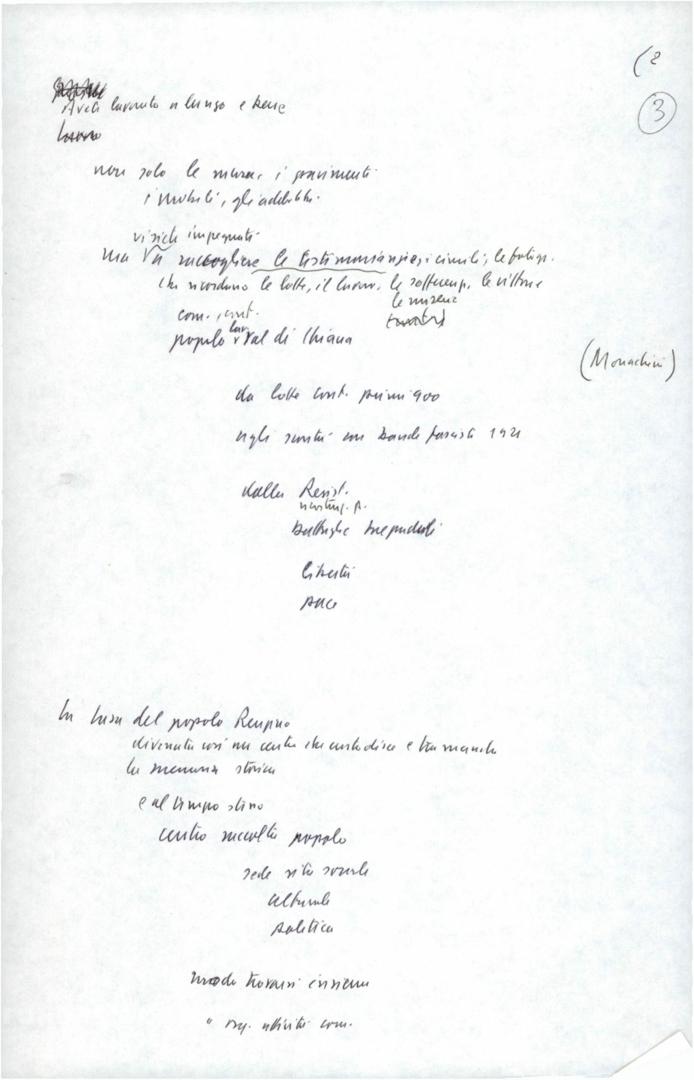 (2
3
Avete lavorato a lungo e bene
lavoro
non solo le mura, i pavimenti
i mobili, gli addobbi.
vi siete impegnati
ma va raccogliere le testimonianze, i cimeli,
che ricordano le lotte, il lavoro, le sofferenze, le vittorie
le miserie
com. cont.
popolo lav. Val di Chiana
(Monachini)
da lotte cont. primi 900
agli scontri con bande fasciste 1921
dalla Resist.
battaglie
libertà
pace
La Casa del popolo
divenuta così un centro che custodisce e tramanda
la memoria storica
e al tempo stesso
centro raccolta popolo
sede vita sociale
culturale
politica
modo trovarsi insieme
" org. attività com.